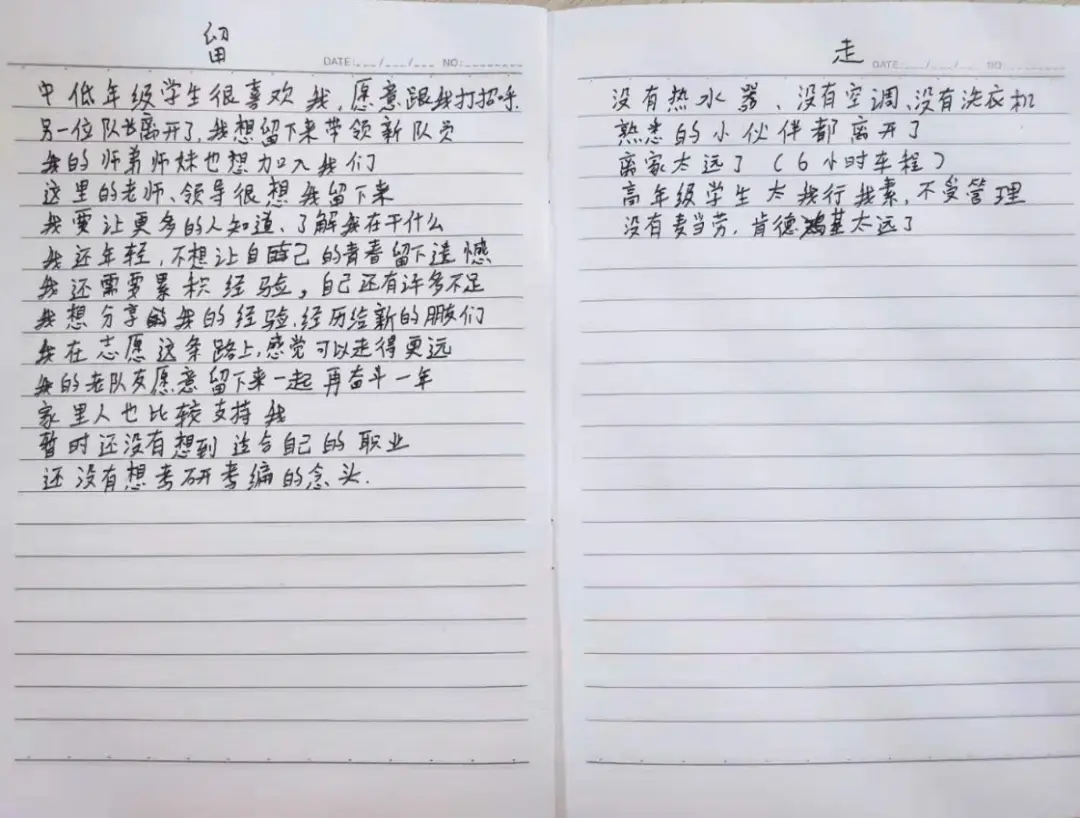 留
DATE: NO:
中低年级学生很喜欢我，愿意跟我打招呼.
另一位队长离开了，我想留下来带领新队员
我的师弟师妹也想加入我们
这里的老师、领导很想我留下来
我要让更多的人知道、了解我在干什么
我还年轻，不想让自己的青春留下遗憾
我还需要累积经验，自己还有许多不足
我想分享我的经验、经历给新的朋友们
我在志愿这条路上，感觉可以走得更远
我的老队友愿意留下来一起再奋斗一年
家里人也比较支持我
暂时还没有想到适合自己的职业
还没有想考研考编的念头.
走
DATE: NO:
没有热水器、没有空调、没有洗衣机
熟悉的小伙伴都离开了
离家太远了（6小时车程）
高年级学生太我行我素，不受管理
没有麦当劳，肯德基太远了